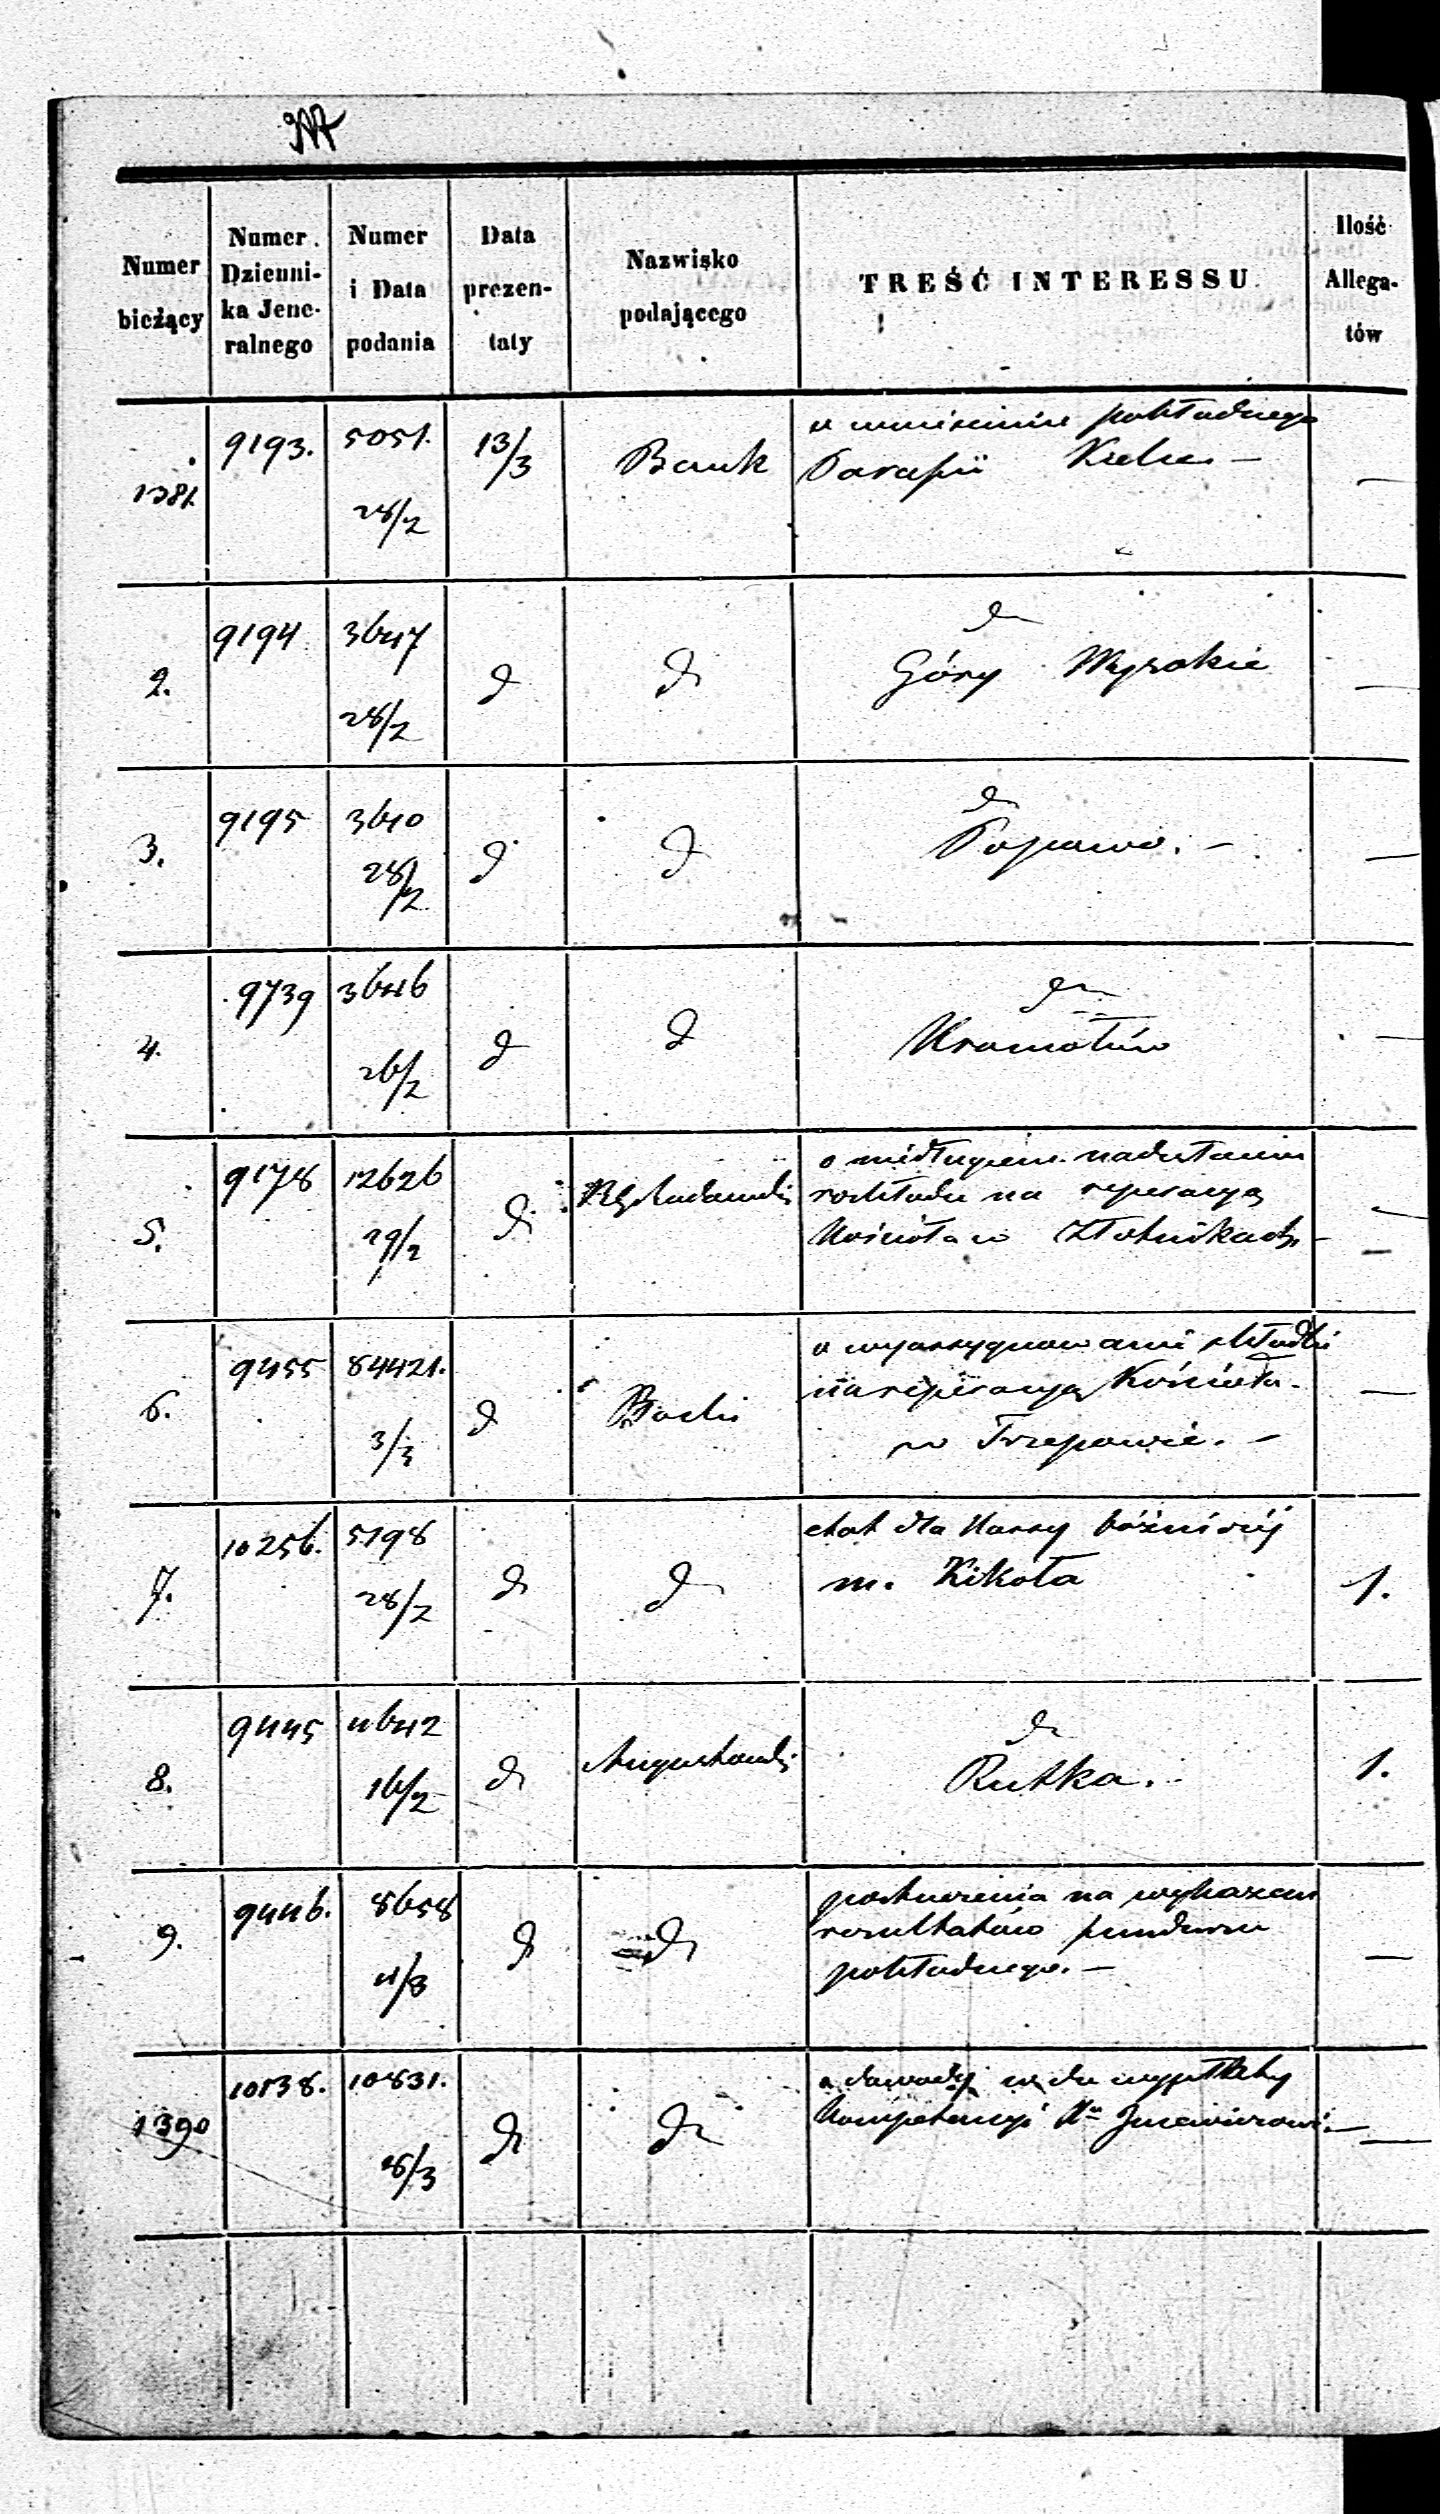 Numer bieżący
Numer Dziennika Jeneralnego
Numer i Data podania
Data prezentaty
Nazwisko podającego
TREŚĆ INTERESSU
Ilość Allegatów
1381. 9193. 5051. 28/2 13/3 Bank o umieszczeniu pokładnego
Parafii Kielce —
2. 9194 3647 28/2 d d d
Góry Wysokie —
3. 9195 3640 28/2 d d d
Popowo. — —
4. 9739 3646 26/2 d d d
Kromołów —
5. 9178 12626 29/2 d RGRadomski o niedługiem nadesłaniu
rozkładu na reperacyę
Kościoła w Złotnikach —
6. 9455 84421. 3/3 d o wyassygnowanie składki
na reperacyę Kościoła
w Trzepowie. — —
7. 10256. 5198 28/2 d d etat dla Kassy bóżniczéj
m. Kikoła 1.
8. 9445 4642 16/2 d Augustowski d
Rutka. 1.
9. 9446. 8658 4/3 d d na wykazem
rezultatów funduszu
pokładnego. — —
1390 10138. 10831. 28/3 d d wypłaty
Kompetencyi —